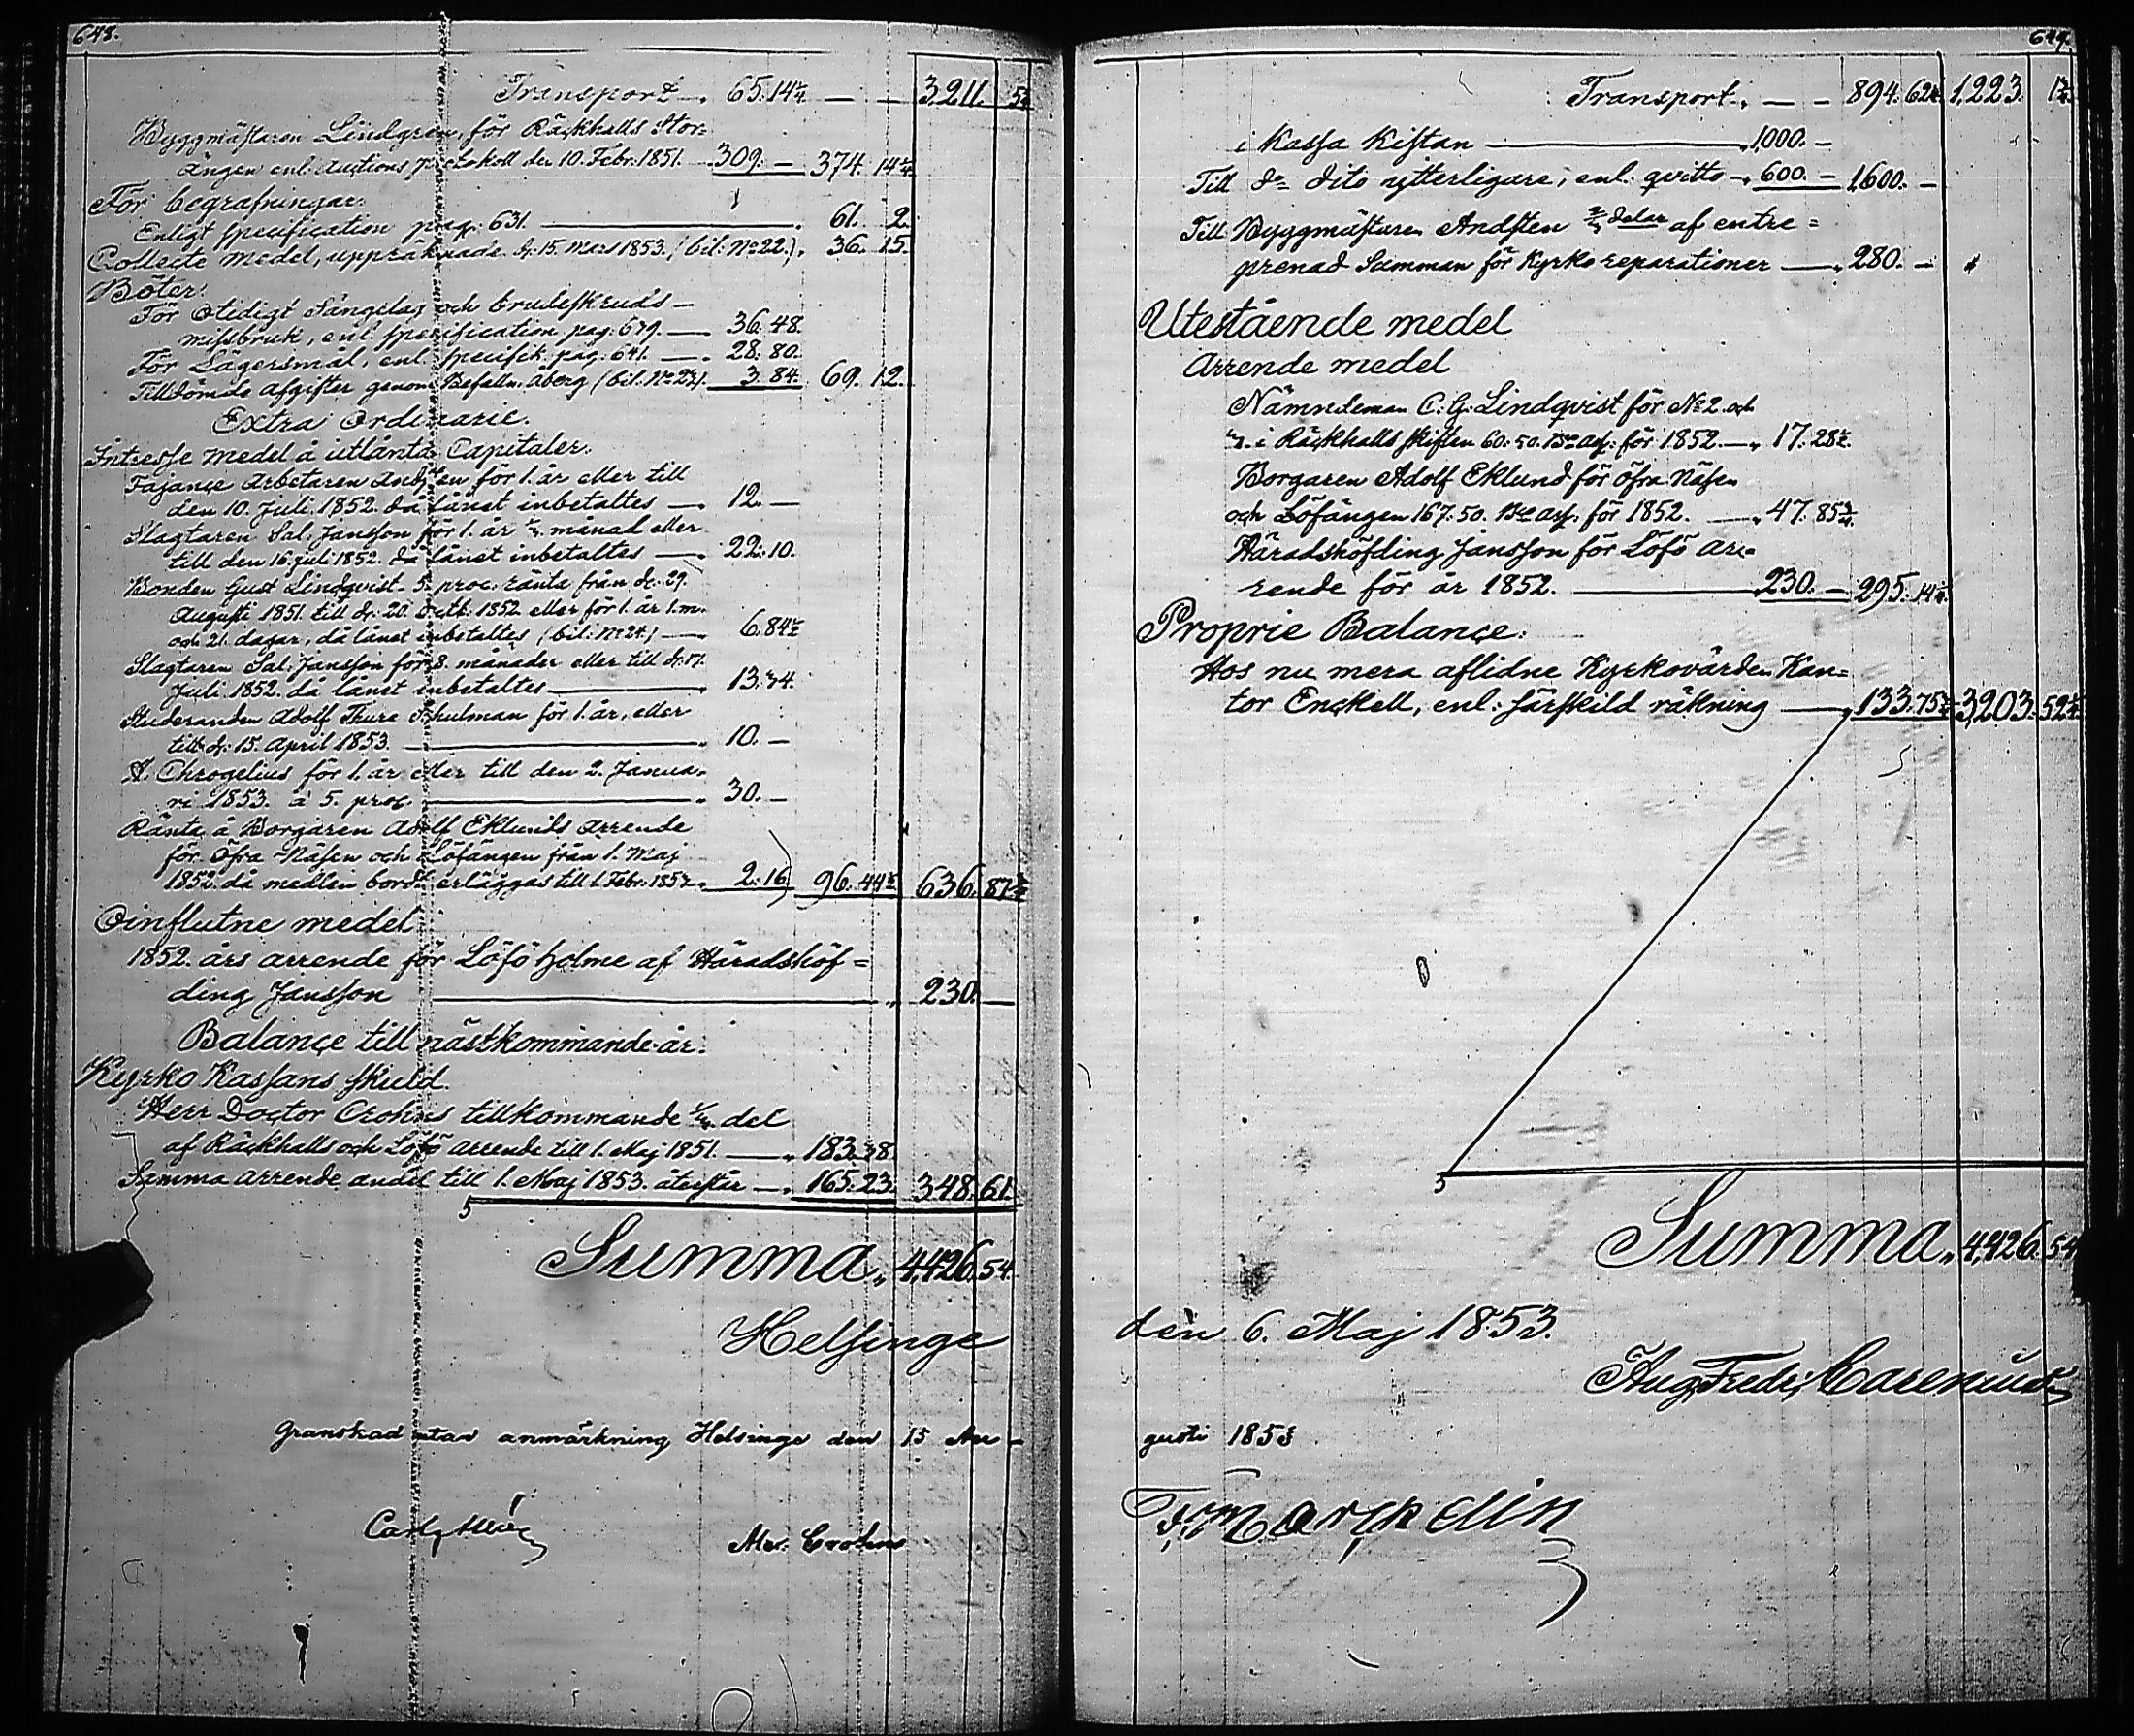 648.
Transport — „ 65. 14 2/7. — — 3,211. 5 1/2
Byggmästaren Lindgren, för Räckhalls Stor=
ängen enl. auctions protokoll den 10. Febr. 1851. — 309. — 374. 14 2/7.
För begrafningar:
Enligt specification pag: 631. — „ 61. 2.
Collecte medel, uppräknade d: 15. Mars 1853. (bil: No 22.) „ 36. 15.
Böter:
För Otidigt Sängelag och brudeskruds —
missbruk, enl. specification pag: 679. — „ 36. 48.
För Lägersmål, enl. specifik. pag: 641. — „ 28. 80.
Tilldömde afgifter genom Befalln. Åberg (bil. No 23). 3. 84. 69. 12.
Extra Ordinarie.
Intresse medel å utlånta Capitaler:
Fajançe Arbetaren Andsten för 1. år eller till
den 10. Juli 1852. då lånet inbetaltes — „ 12. —
Slagtaren Sal. Jansson för 1. år 1/2 månad eller
till den 16. Juli 1852. då lånet inbetaltes — „ 22. 10.
Bonden Gust Lindqvist. 5. proc. ränta från d. 29.
Augusti 1851. till d: 20. Octb. 1852. eller för 1. år 1. m.
och 21. dagar, då lånet inbetaltes (bil: No 24.) — „ 6. 84 1/2
Slagtaren Sal. Jansson för 8. månader eller till d: 17.
Juli 1852. då lånet inbetaltes — „ 13. 34.
Studeranden Adolf Thure Schulman för 1. år, eller
till d: 15. April 1853. — „ 10. —
A. Chrogelius för 1. år eller till den 2. Janua-
ri 1853. à 5. proc. — „ 30. —
Ränta å Borgaren Adolf Eklunds Arrende
för Öfra Näsen och Löfängen från 1. Maj
1852. då medlen bordt erläggas till 1. Febr. 1853. „ 2. 16. 96. 44 1/2 636. 87
Oinflutne medel
1852. års arrende för Löfö holme af Häradshöf=
ding Jansson — „ 230. —
Balançe till nästkommande år.
Kyrko Kassans skuld.
Herr Doctor Crohns tillkommande 1/4 del
af Räckhalls och Löfö arrende till 1. Maj 1851. — „ 183. 38.
Samma arrende andel till 1. Maj 1853. återstår — „ 165. 23. 348. 61.
Summa „ 4,426. 54.
Helsinge
Granskad utan anmärkning Helsinge den 15 Au-
Mer. Crohns
Transport „ — — 894. 62 1,223. 1
i Kassa Kistan — „ 1,000. —
Till do dito ytterligare, enl. qvitto — „ 600. — 1,600. —
Till Byggmästaren Andsten 2/4 delar af entre=
prenad Summan för Kyrko reparationer — „ 280. —
Utestående medel
Arrende medel
Nämndeman C: G: Lindqvist för No 2. och
4. i Räckhalls skiften 60: 50. Bco ass: för 1852. — „ 17. 28
Borgaren Adolf Eklund för Öfra Näsen
och Löfängen 167: 50. Bco ass. för 1852. — „ 47. 85
Häradshöfding Jansson för Löfö Ar-
rende för år 1852. — „ 230. — 295. 14
Proprie Balançe:
Hos nu mera aflidne Kyrkovärden Kan=
tor Enckell, enl: särskild räkning — „ 133. 75 3,203. 52
Summa „ 4,426. 54
den 6. Maj 1853.
Aug. Fredr. Carenius
gusti 1853